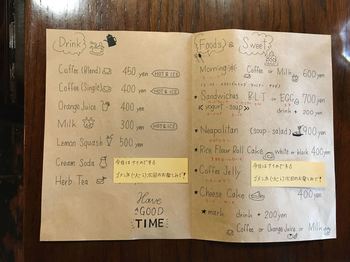 Drink
Coffee (Blend) 450 yen HOT & ICE
Coffee (Single) 400 yen HOT & ICE
Orange Juice 400 yen
Milk 300 yen HOT & ICE
Lemon Squash 500 yen
Cream Soda
Herb Tea
Have
a GOOD
TIME
Foods & Sweet
Morning Coffee or Milk 600 yen
★ Sandwiches B·L·T or EGG 700 yen
yogurt · soup drink + 200 yen
★ Neapolitan (soup · salad) 900 yen
★ Rice Flour Roll Cake white or black 400 yen
★ Coffee Jelly
★ Cheese Cake 400 yen
★ mark drink + 200 yen
Coffee or Orange Juice or Milk